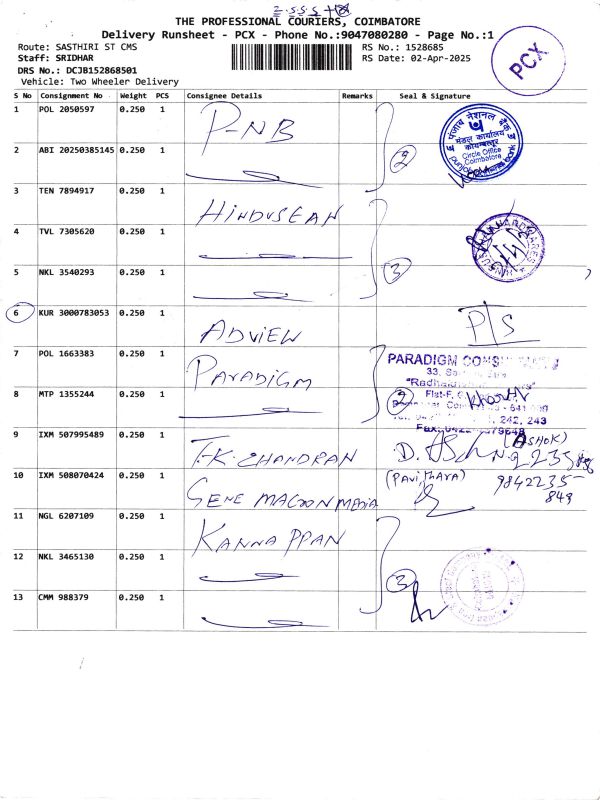 THE PROFESSIONAL COURIERS, COIMBATORE
Delivery Runsheet - PCX - Phone No.:9047080280 - Page No.:1
Route: SASTHIRI ST CMS
RS No.: 1528685
Staff: SRIDHAR
RS Date: 02-Apr-2025
DRS No.: DCJB152868501
Vehicle: Two Wheeler Delivery
PCX
S No Consignment No Weight PCS Consignee Details Remarks Seal & Signature
1 POL 2050597 0.250 1 P-NB
पंजाब नैशनल बैंक
मंडल कार्यालय
कोयम्बत्तूर
Circle Office
Coimbatore
punjab national bank
2 ABI 20250385145 0.250 1
2
3 TEN 7894917 0.250 1 HINDUSEAN
4 TVL 7305620 0.250 1
3
5 NKL 3540293 0.250 1
6 KUR 3000783053 0.250 1 ADVIEW P/S
7 POL 1663383 0.250 1 PARADIGM
PARADIGM
33,
8 MTP 1355244 0.250 1
2
Flat-F,
242, 243
9 IXM 507995489 0.250 1 T.K. CHANDRAN
(ASHOK)
10 IXM 508070424 0.250 1 GENE MACOON MEDIA
(PAVITHARA)
9842235
849
11 NGL 6207109 0.250 1 KANNAPPAN
12 NKL 3465130 0.250 1
3
13 CMM 988379 0.250 1